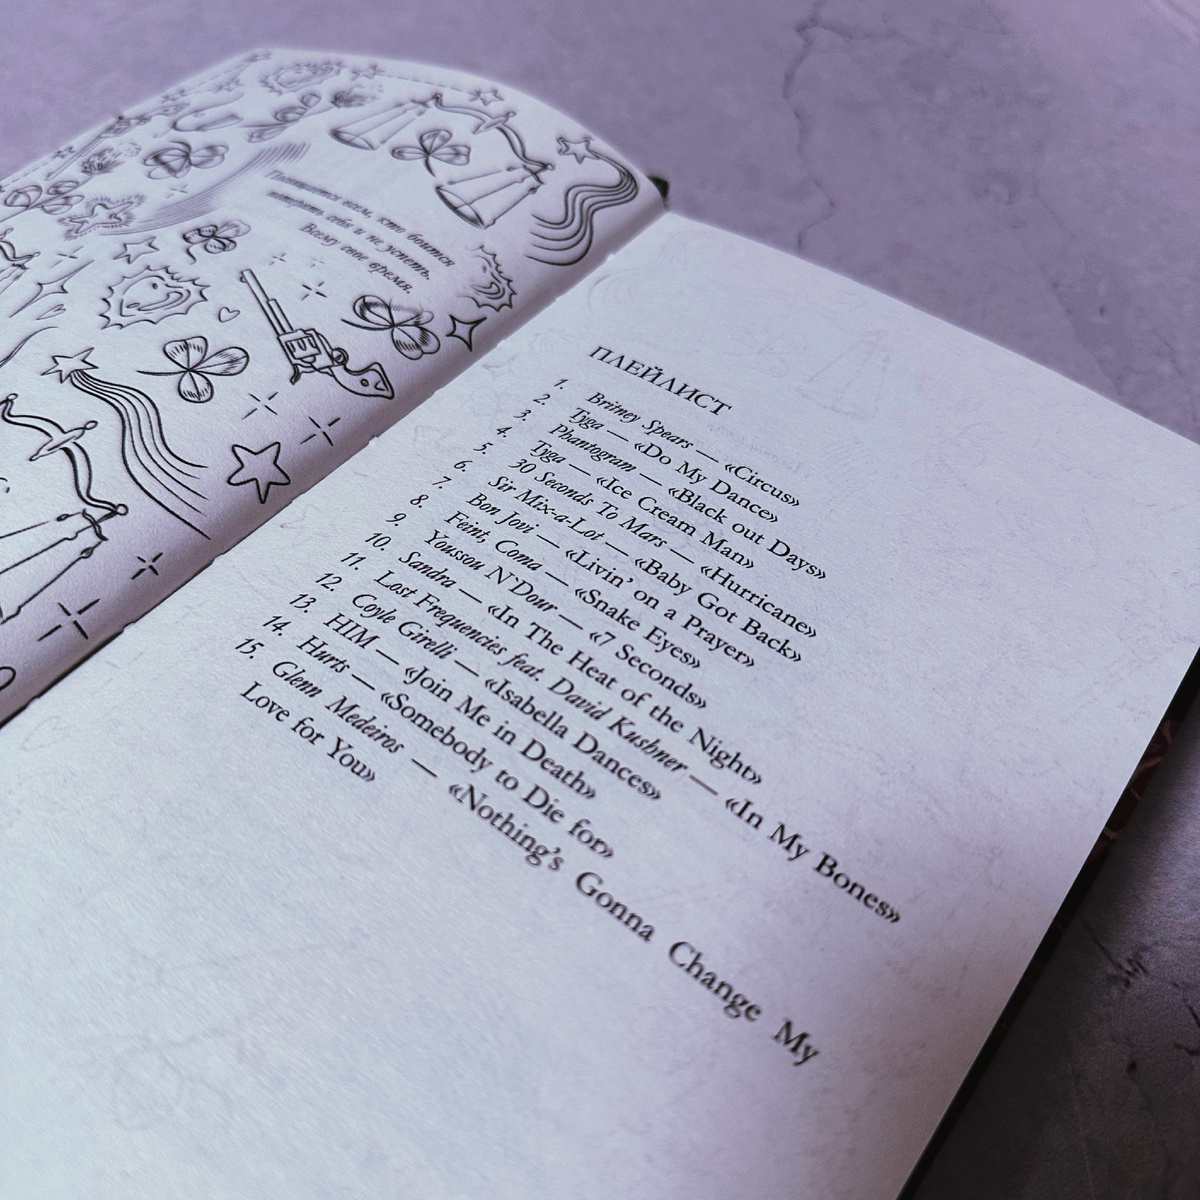 Посвящается всем, кто боится
потерять себя и не успеть.
Всему свое время.
ПЛЕЙЛИСТ
1. Britney Spears — «Circus»
2. Tyga — «Do My Dance»
3. Phantogram — «Black out Days»
4. Tyga — «Ice Cream Man»
5. 30 Seconds To Mars — «Hurricane»
6. Sir Mix-a-Lot — «Baby Got Back»
7. Bon Jovi — «Livin’ on a Prayer»
8. Feint, Coma — «Snake Eyes»
9. Youssou N'Dour — «7 Seconds»
10. Sandra — «In The Heat of the Night»
11. Lost Frequencies feat. David Kushner — «In My Bones»
12. Coyle Girelli — «Isabella Dances»
13. HIM — «Join Me in Death»
14. Hurts — «Somebody to Die for»
15. Glenn Medeiros — «Nothing’s Gonna Change My
Love for You»